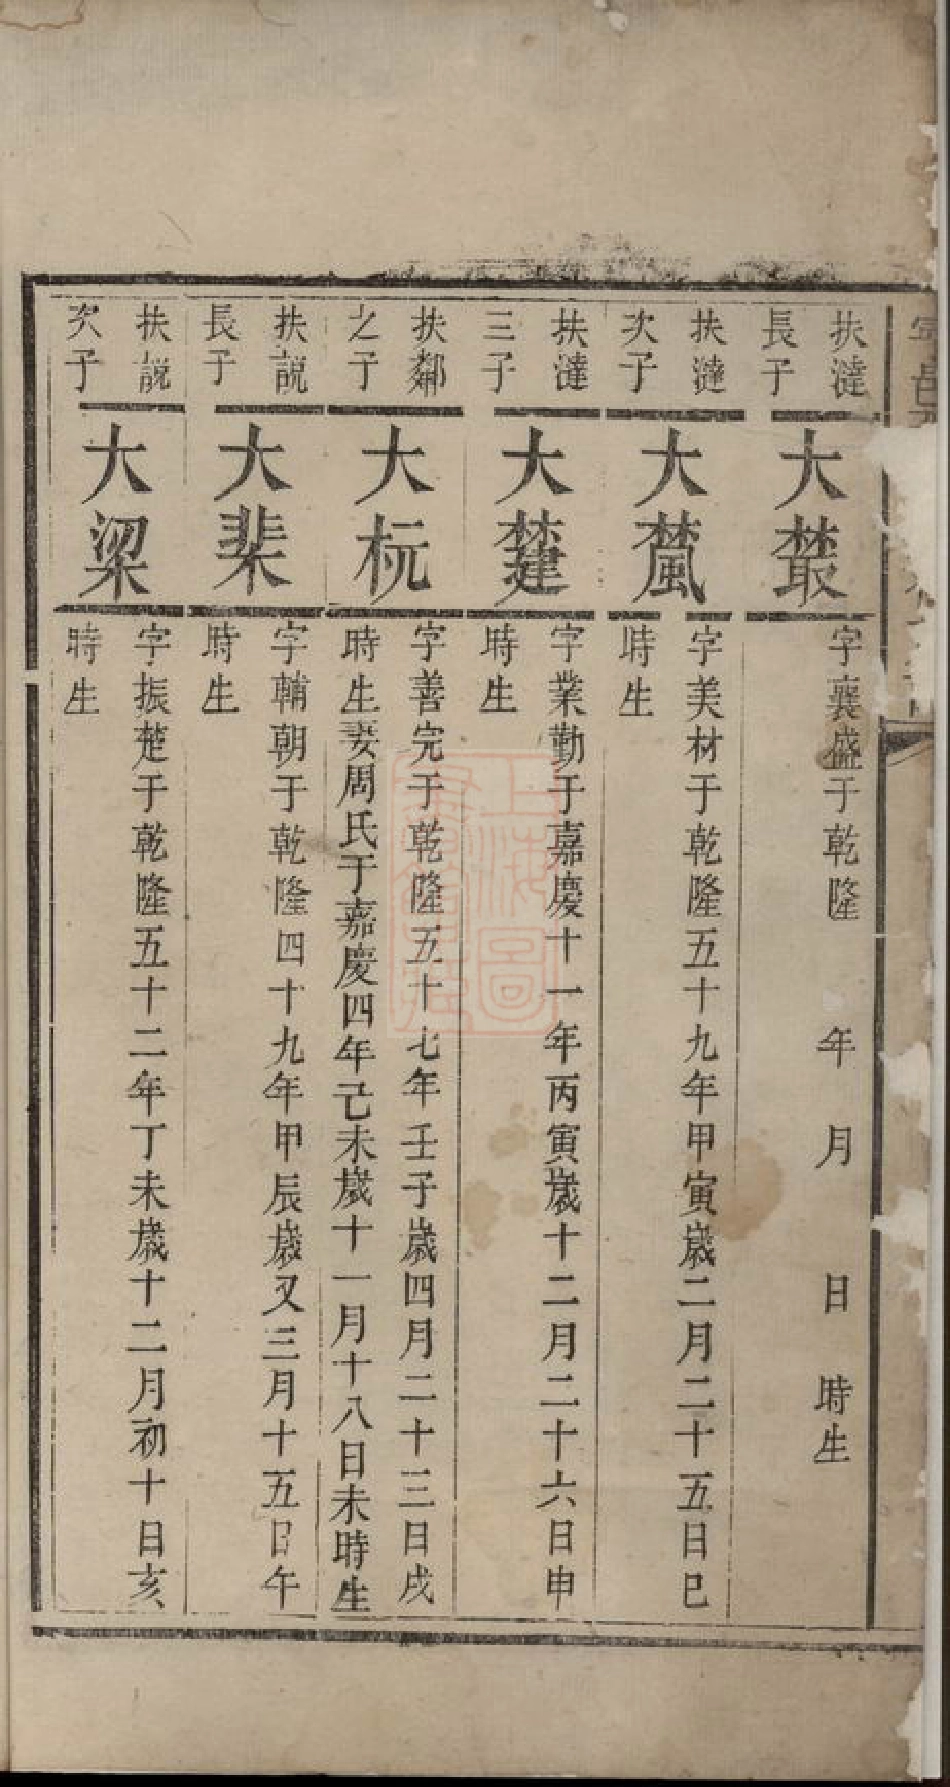 扶漣
長子
大藂
字襄盛于乾隆　年　月　日　時生
扶漣
次子
大䔍
字美材于乾隆五十九年甲寅歲二月二十五日巳
時生
扶漣
三子
字業勤于嘉慶十一年丙寅歲十二月二十六日申
時生
扶鄰
之子
大杬
字善完于乾隆五十七年壬子歲四月二十三日戌
時生妻周氏于嘉慶四年己未歲十一月十八日未時生
扶說
長子
大棐
字輔朝于乾隆四十九年甲辰歲又三月十五日午
時生
扶說
次子
大梁
字振楚于乾隆五十二年丁未歲十二月初十日亥
時生